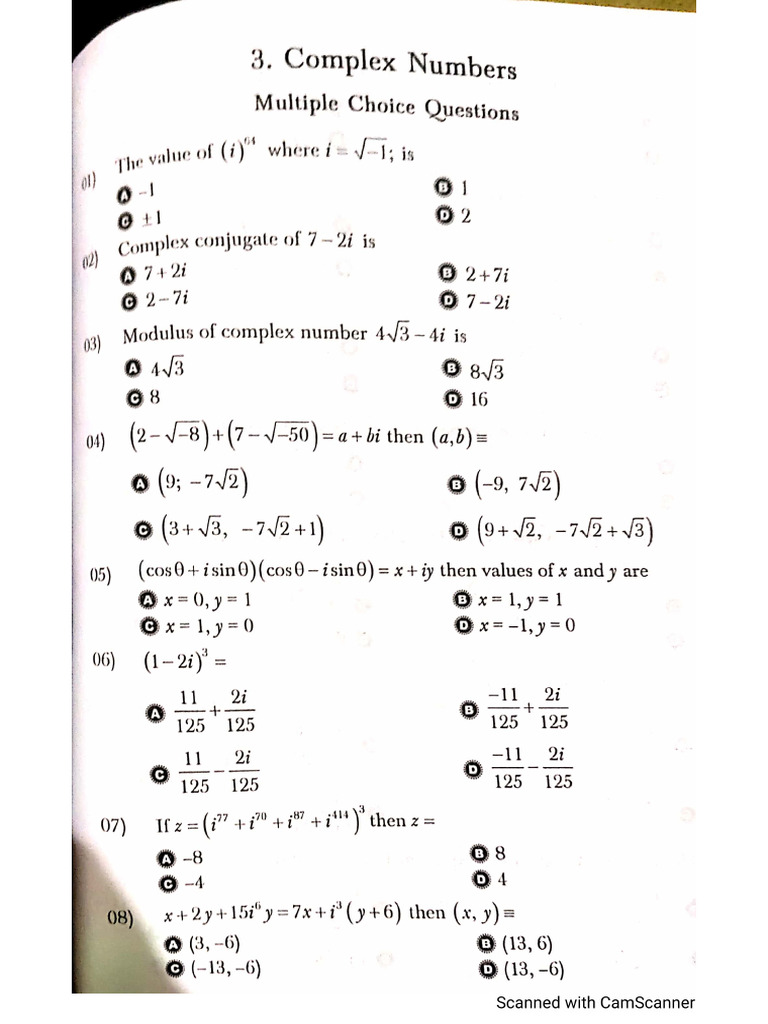 3. Complex Numbers
Multiple Choice Questions
01) The value of (i)^64 where i = √−1; is
A −1 B 1
C ±1 D 2
02) Complex conjugate of 7 − 2i is
A 7 + 2i B 2 + 7i
C 2 − 7i D 7 − 2i
03) Modulus of complex number 4√3 − 4i is
A 4√3 B 8√3
C 8 D 16
04) (2 − √−8) + (7 − √−50) = a + bi then (a, b) ≡
A (9; −7√2) B (−9, 7√2)
C (3 + √3, −7√2 + 1) D (9 + √2, −7√2 + √3)
05) (cos θ + i sin θ)(cos θ − i sin θ) = x + iy then values of x and y are
A x = 0, y = 1 B x = 1, y = 1
C x = 1, y = 0 D x = −1, y = 0
06) (1 − 2i)^3 =
A 11/125 + 2i/125 B −11/125 + 2i/125
C 11/125 − 2i/125 D −11/125 − 2i/125
07) If z = (i^77 + i^70 + i^87 + i^414)^3 then z =
A −8 B 8
C −4 D 4
08) x + 2y + 15i^6 y = 7x + i^3 (y + 6) then (x, y) ≡
A (3, −6) B (13, 6)
C (−13, −6) D (13, −6)
Scanned with CamScanner